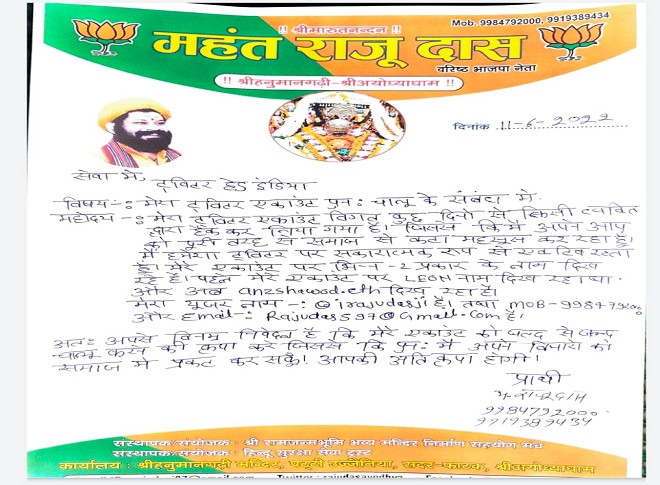 Mob. 9984792000, 9919389434
!! श्रीमारुतनन्दन !!
महंत राजू दास
वरिष्ठ भाजपा नेता
!! श्रीहनुमानगढ़ी-श्रीअयोध्याधाम !!
दिनांक 11-6-2022
सेवा में,
ट्विटर हेड इंडिया
विषय -: मेरा ट्विटर एकाउंट पुनः चालू के संबंध में
महोदय -: मेरा ट्विटर एकाउंट विगत कुछ दिनों से किसी व्यक्ति
द्वारा हैक कर लिया गया है। जिससे कि मैं अपने आप
को पूरी तरह से समाज से कटा महसूस कर रहा हूँ।
मैं हमेशा ट्विटर पर सकारात्मक रूप से एक्टिव रहता
हूँ। मेरे एकाउंट पर भिन्न-2 प्रकार के नाम दिख
रहे हैं। पहले मेरे एकाउंट पर LEON नाम दिख रहा था।
और अब anzshawod.eth दिख रहा है।
मेरा यूजर नाम -: @irajudasji है। तथा MOB-9984792000
और Email-: Rajudas597@Gmail.Com है।
अतः आपसे विनम्र निवेदन है कि मेरे एकाउंट को जल्द से जल्द
चालू करने की कृपा करें जिससे कि पुनः मैं अपने विचारों को
समाज में प्रकट कर सकूँ। आपकी अति कृपा होगी।
प्रार्थी
9984792000
9919389434
संस्थापक संयोजक : श्री रामजन्मभूमि भव्य मन्दिर निर्माण सहयोग मंच
संस्थापक संयोजक : हिन्दू सुरक्षा सेवा ट्रस्ट
कार्यालय : श्रीहनुमानगढ़ी मन्दिर, पट्टी उज्जैनिया, सदर-फाटक, श्रीअयोध्याधाम